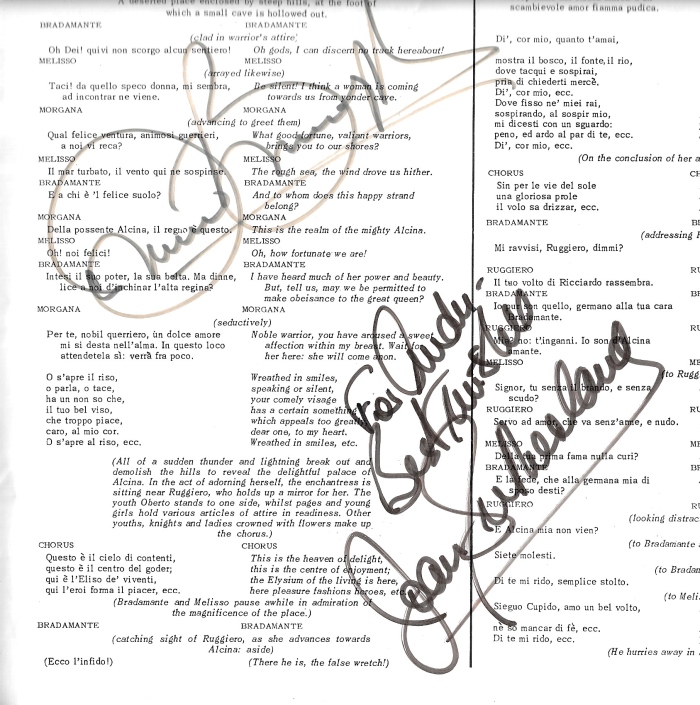 A deserted place enclosed by steep hills, at the foot of
which a small cave is hollowed out.
BRADAMANTE BRADAMANTE
(clad in warrior's attire)
Oh Dei! quivi non scorgo alcun sentiero! Oh gods, I can discern no track hereabout!
MELISSO MELISSO
(arrayed likewise)
Taci! da quello speco donna, mi sembra, Be silent! I think a woman is coming
ad incontrar ne viene. towards us from yonder cave.
MORGANA MORGANA
(advancing to greet them)
Qual felice ventura, animosi guerrieri, What good fortune, valiant warriors,
a noi vi reca? brings you to our shores?
MELISSO MELISSO
Il mar turbato, il vento qui ne sospinse. The rough sea, the wind drove us hither.
BRADAMANTE BRADAMANTE
E a chi è 'l felice suolo? And to whom does this happy strand
belong?
MORGANA MORGANA
Della possente Alcina, il regno è questo. This is the realm of the mighty Alcina.
MELISSO MELISSO
Oh! noi felici! Oh, how fortunate we are!
BRADAMANTE BRADAMANTE
Intesi il suo poter, la sua beltà. Ma dinne, I have heard much of her power and beauty.
lice a noi d'inchinar l'alta regina? But, tell us, may we be permitted to
make obeisance to the great queen?
MORGANA MORGANA
(seductively)
Per te, nobil querriero, un dolce amore Noble warrior, you have aroused a sweet
mi si desta nell'alma. In questo loco affection within my breast. Wait for
attendetela sì: verrà fra poco. her here: she will come anon.
O s'apre il riso, Wreathed in smiles,
o parla, o tace, speaking or silent,
ha un non so che, your comely visage
il tuo bel viso, has a certain something
che troppo piace, which appeals too greatly
caro, al mio cor. dear one, to my heart.
O s'apre al riso, ecc. Wreathed in smiles, etc.
(All of a sudden thunder and lightning break out and
demolish the hills to reveal the delightful palace of
Alcina. In the act of adorning herself, the enchantress is
sitting near Ruggiero, who holds up a mirror for her. The
youth Oberto stands to one side, whilst pages and young
girls hold various articles of attire in readiness. Other
youths, knights and ladies crowned with flowers make up
the chorus.)
CHORUS CHORUS
Questo è il cielo di contenti, This is the heaven of delight,
questo è il centro del goder; this is the centre of enjoyment;
qui è l'Eliso de' viventi, the Elysium of the living is here,
qui l'eroi forma il piacer, ecc. here pleasure fashions heroes, etc.
(Bradamante and Melisso pause awhile in admiration of
the magnificence of the place.)
BRADAMANTE BRADAMANTE
(catching sight of Ruggiero, as she advances towards
Alcina: aside)
(Ecco l'infido!) (There he is, the false wretch!)
scambievole amor fiamma pudica.
Di', cor mio, quanto t'amai,
mostra il bosco, il fonte, il rio,
dove tacqui e sospirai,
pria di chiederti mercè.
Di', cor mio, ecc.
Dove fisso ne' miei rai,
sospirando, al sospir mio,
mi dicesti con un sguardo:
peno, ed ardo al par di te, ecc.
Di', cor mio, ecc.
(On the conclusion of her a
CHORUS CH
Sin per le vie del sole
una gloriosa prole
il volo sa drizzar, ecc.
BRADAMANTE BR
(addressing
Mi ravvisi, Ruggiero, dimmi?
RUGGIERO RU
Il tuo volto di Ricciardo rassembra.
BRADAMANTE BR
Io pur son quello, germano alla tua cara
Bradamante.
RUGGIERO RU
Mia? no: t'inganni. Io son d'Alcina
amante.
MELISSO ME
(to Rugg
Signor, tu senza il brando, e senza
scudo?
RUGGIERO RU
Servo ad amor, che va senz'arme, e nudo.
MELISSO ME
Della tua prima fama nulla curi?
BRADAMANTE BR
E la fede, che alla germana mia di
sposo desti?
RUGGIERO RU
(looking distrac
E Alcina mia non vien?
(to Bradamante
Siete molesti.
(to Bradan
Di te mi rido, semplice stolto.
(to Meli
Sieguo Cupido, amo un bel volto,
nè so mancar di fè, ecc.
Di te mi rido, ecc.
(He hurries away in
For Andy.
Best Wishes
Joan Sutherland